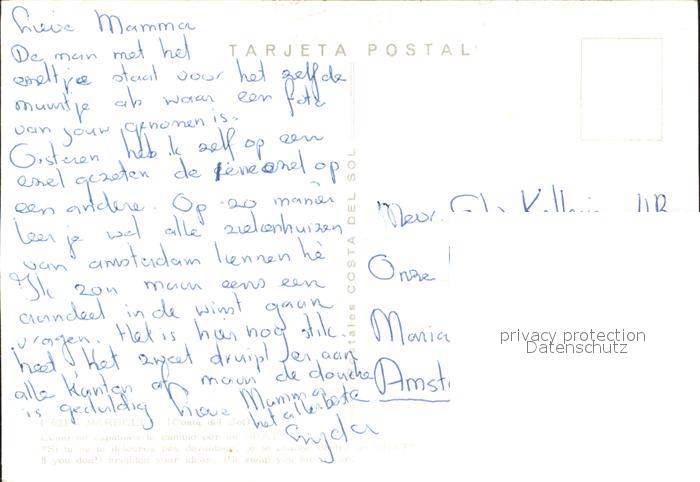 Lieve Mamma
De man met het
ezeltje staat voor het zelfde
muurtje als waar een foto
van jouw genomen is.
Gisteren heb ik zelf op een
ezel gezeten de ene ezel op
een andere. Op zo manier
leer je wel alle ziekenhuizen
van amsterdam kennen hè
Ik zou maar eens een
aandeel in de winst gaan
vragen. Het is hier nog stik
heet het zweet druipt er aan
alle kanten af maar de douche
is geduldig lieve Mamma
het allerbeste
TARJETA POSTAL
COSTA DEL SOL
Mevr.
Onze
Maria
Amst
privacy protection
Datenschutz
MARBELLA (Costa del Sol)